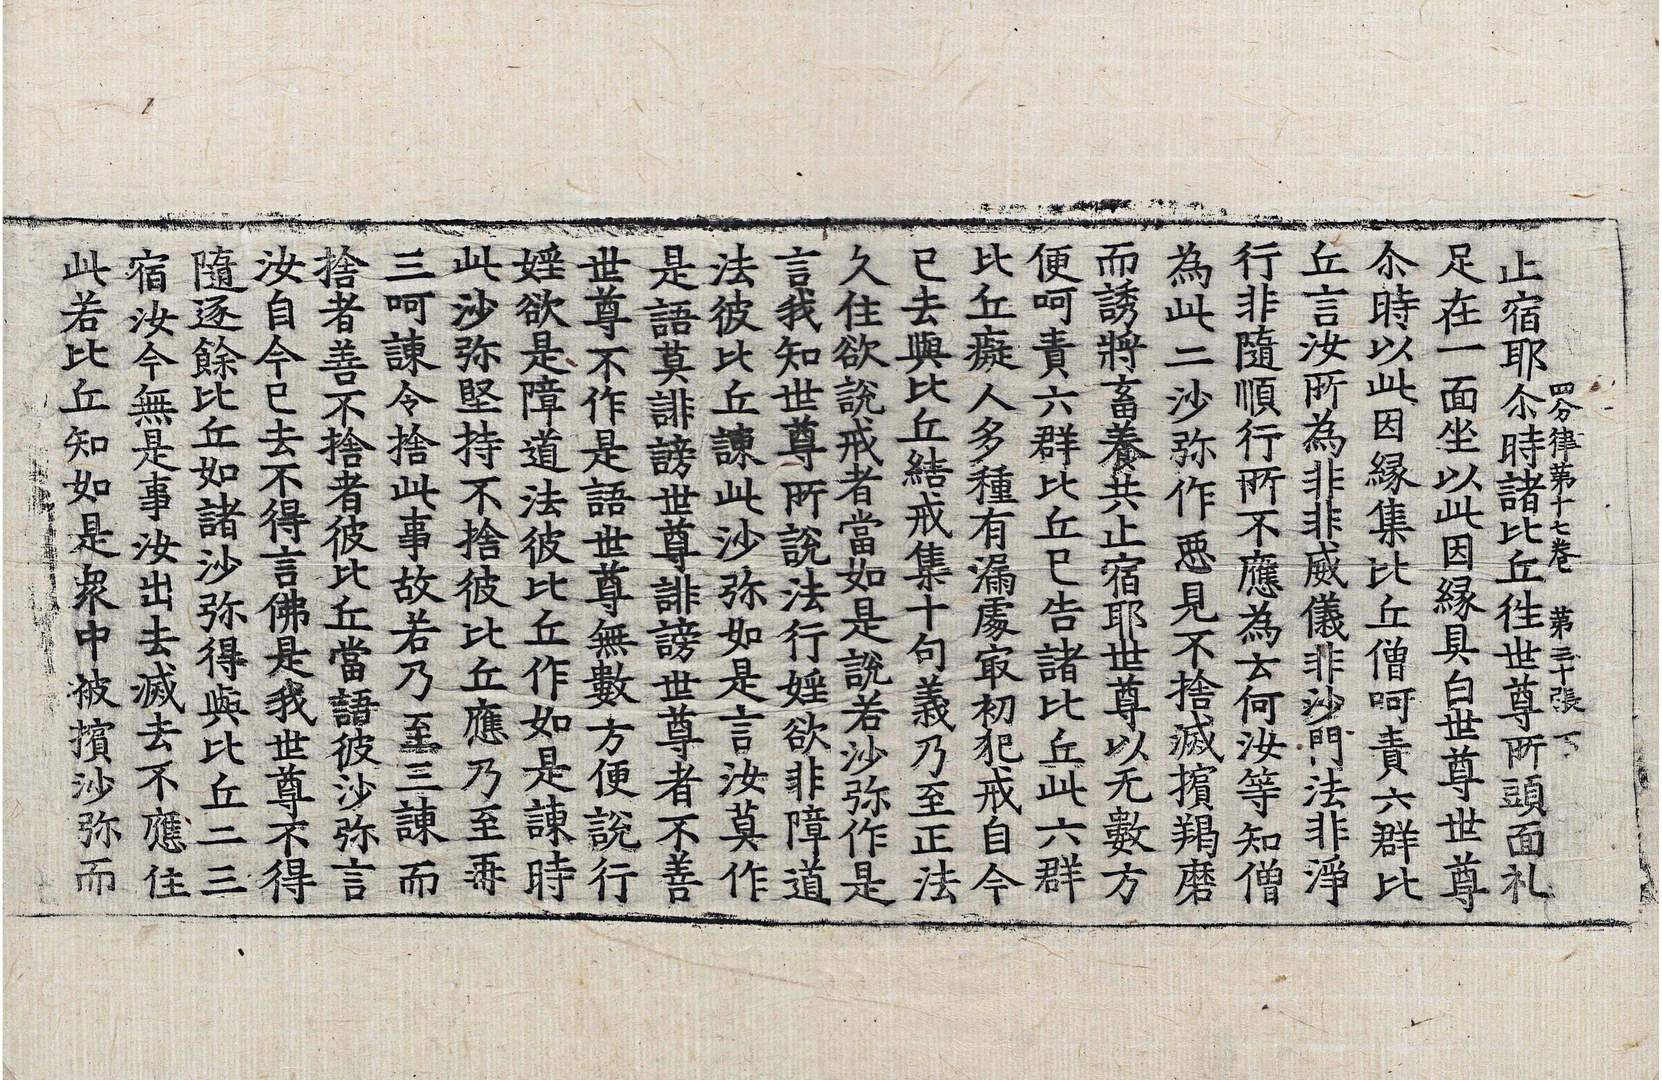 四分律第十七卷　第三十張　下
止宿耶尒時諸比丘徃世尊所頭面礼
足在一面坐以此因縁具白世尊世尊
尒時以此因縁集比丘僧呵責六群比
丘言汝所為非非威儀非沙門法非淨
行非隨順行所不應為云何汝等知僧
為此二沙弥作惡見不捨滅擯羯磨
而誘將畜養共止宿耶世尊以无數方
便呵責六群比丘已告諸比丘此六群
比丘癡人多種有漏處㝡初犯戒自今
已去與比丘結戒集十句義乃至正法
久住欲說戒者當如是說若沙弥作是
言我知世尊所說法行婬欲非障道
法彼比丘諫此沙弥如是言汝莫作
是語莫誹謗世尊誹謗世尊者不善
世尊不作是語世尊無數方便說行
婬欲是障道法彼比丘作如是諫時
此沙弥堅持不捨彼比丘應乃至再
三呵諫令捨此事故若乃至三諫而
捨者善不捨者彼比丘當語彼沙弥言
汝自今已去不得言佛是我世尊不得
隨逐餘比丘如諸沙弥得與比丘二三
宿汝今無是事汝出去滅去不應住
此若比丘知如是衆中被擯沙弥而